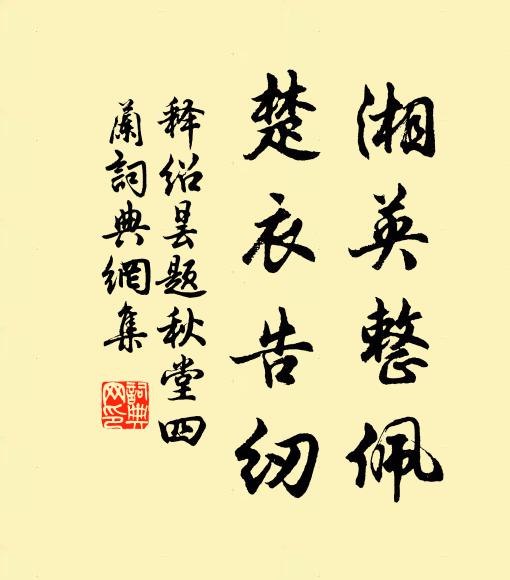 湘英整佩
楚衣告纫
释绍昙题秋堂四
兰词典网集
词典网印